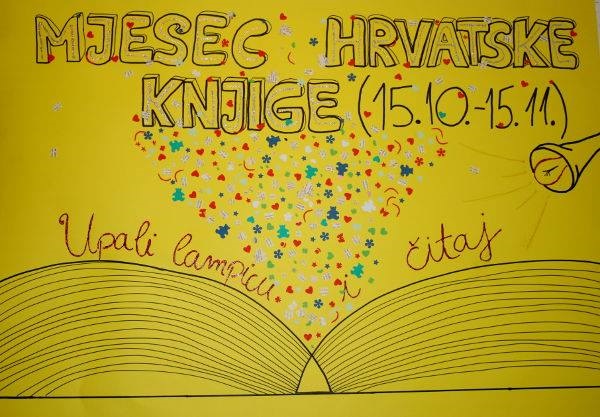 MJESEC HRVATSKE
KNJIGE (15.10.-15.11.)
Upali lampicu i čitaj